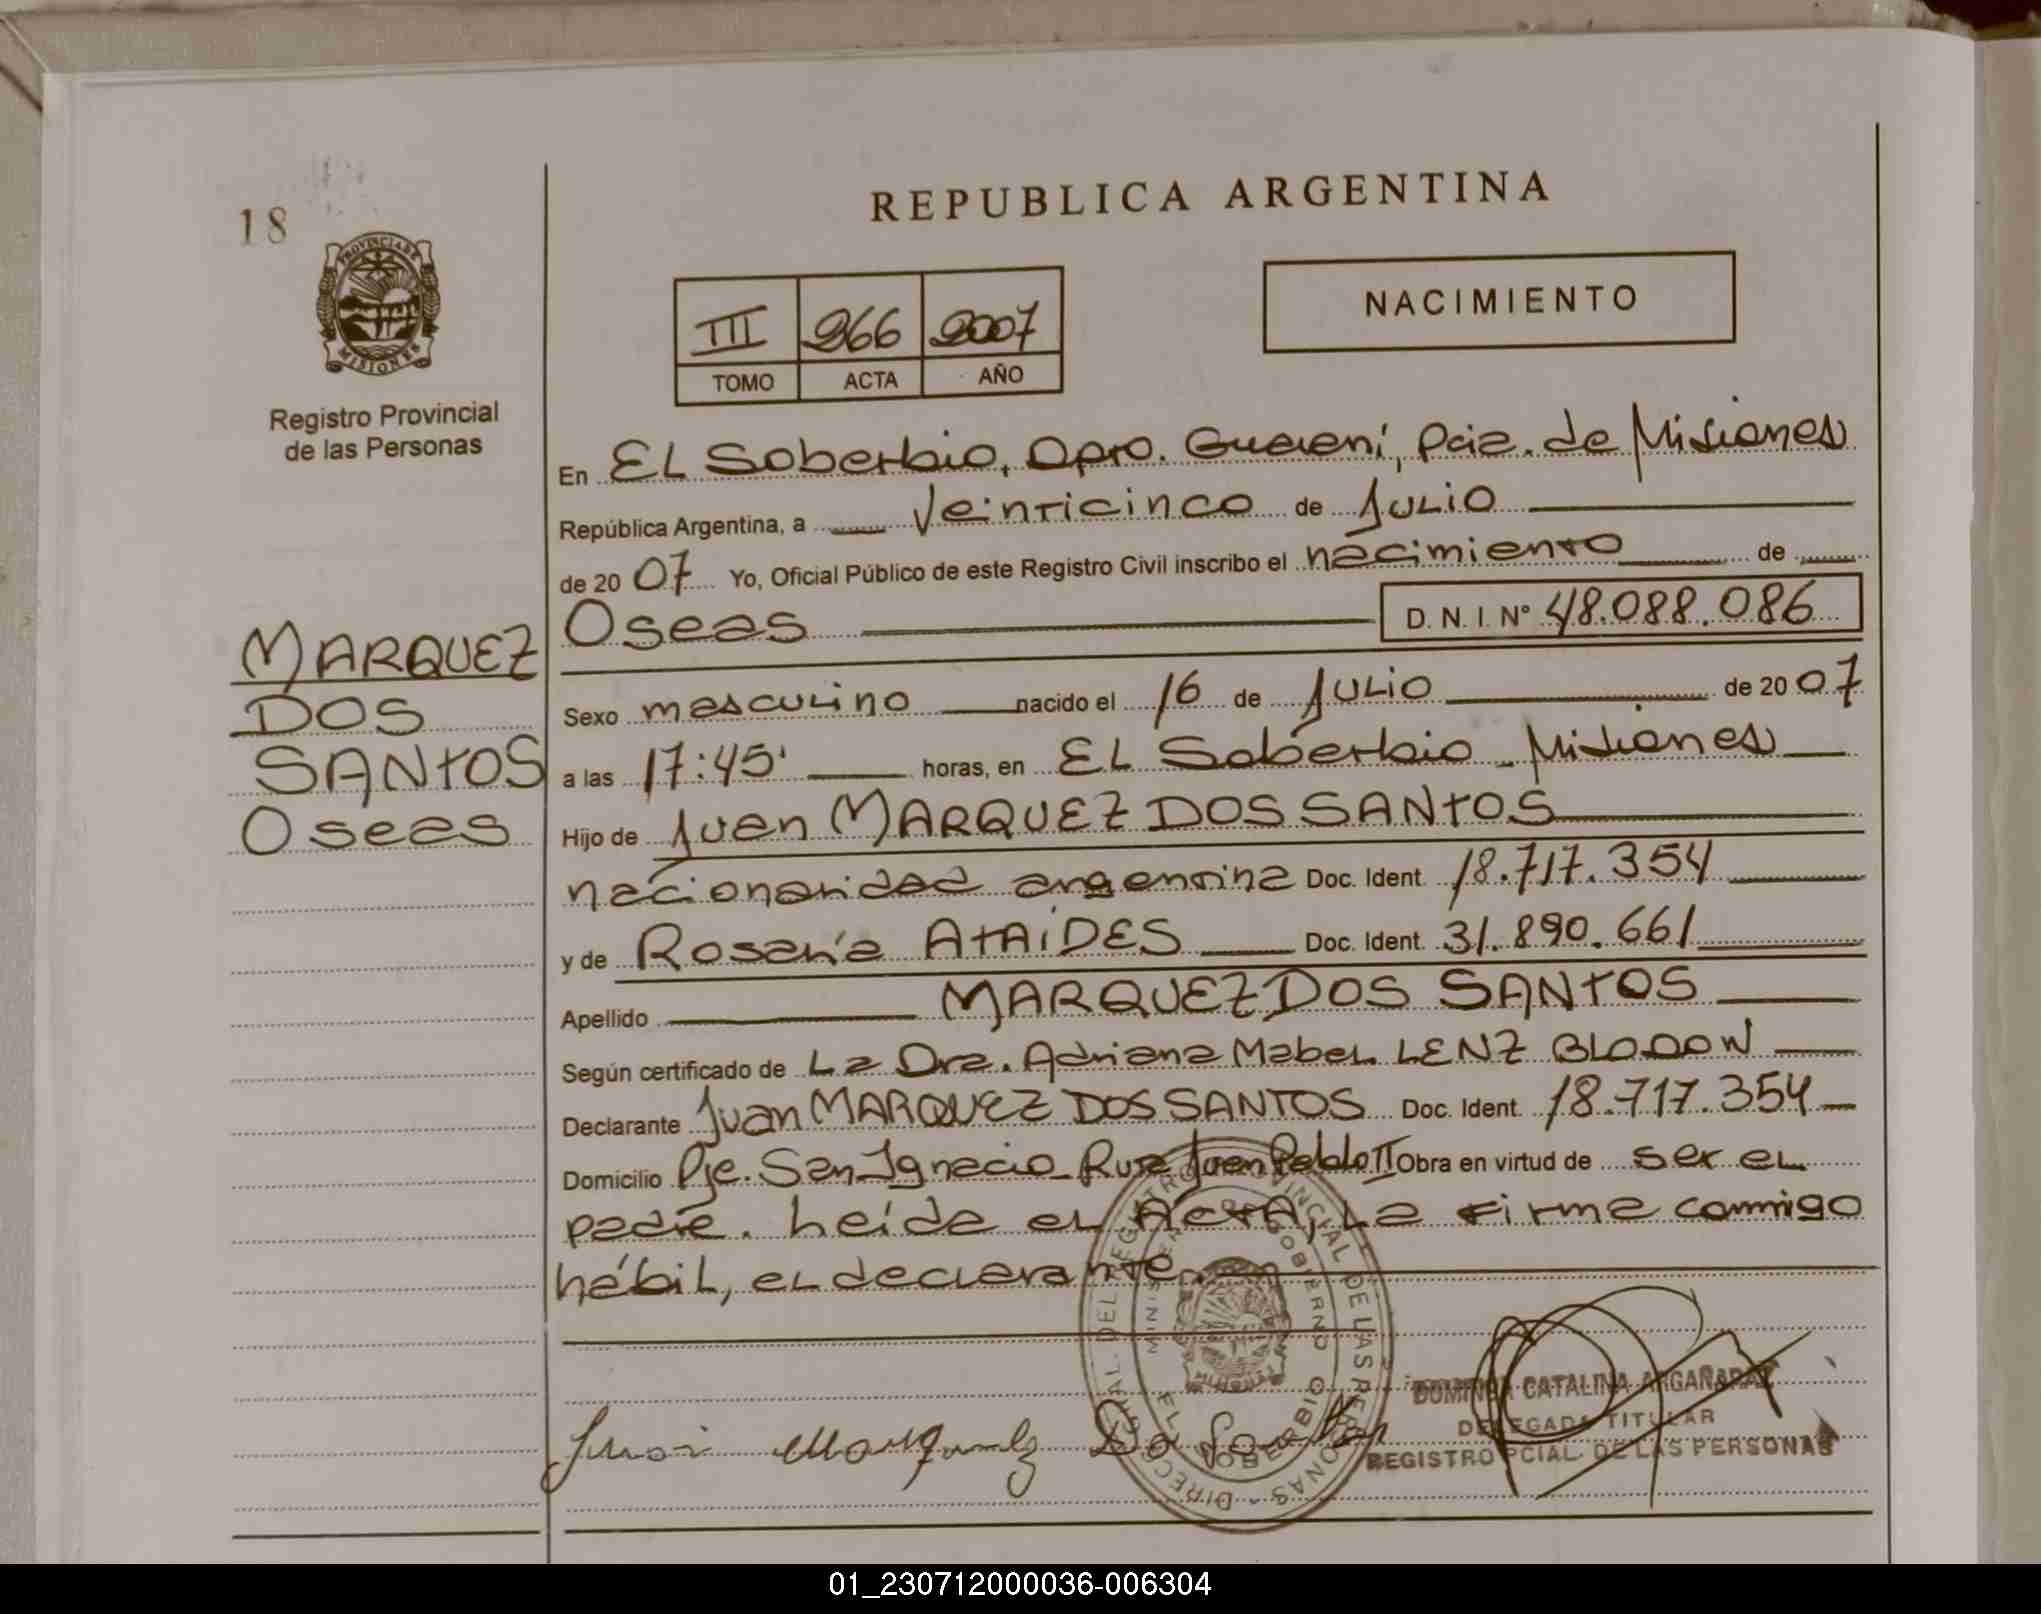 18
PROVINCIA DE
MISIONES
Registro Provincial
de las Personas
MARQUEZ
DOS
SANTOS
Oseas
REPUBLICA ARGENTINA
III 266 2007
TOMO ACTA AÑO
NACIMIENTO
En EL Soberbio, Dpto. Guaraní, Pcia. de Misiones
República Argentina, a Veinticinco de Julio
de 20 07 Yo, Oficial Público de este Registro Civil inscribo el nacimiento de
Oseas D. N. I. N° 48.088.086
Sexo masculino nacido el 16 de Julio de 20 07
a las 17:45' horas, en EL Soberbio - Misiones
Hijo de Juan MARQUEZ DOS SANTOS
nacionalidad argentina Doc. Ident. 18.717.354
y de Rosaria ATAIDES Doc. Ident. 31.890.661
Apellido MARQUEZ DOS SANTOS
Según certificado de La Dra. Adriana Mabel LENZ BLODOW
Declarante Juan MARQUEZ DOS SANTOS Doc. Ident. 18.717.354
Domicilio Pje. San Ignacio - Ruta Juan Pablo II Obra en virtud de ser el
padre. Leída el ACTA, La firma conmigo
hábil, el declarante.
Juan Marquez Do
CATALINA ARGAÑARAZ
DELEGADA TITULAR
REGISTRO PCIAL. DE LAS PERSONAS
01_230712000036-006304